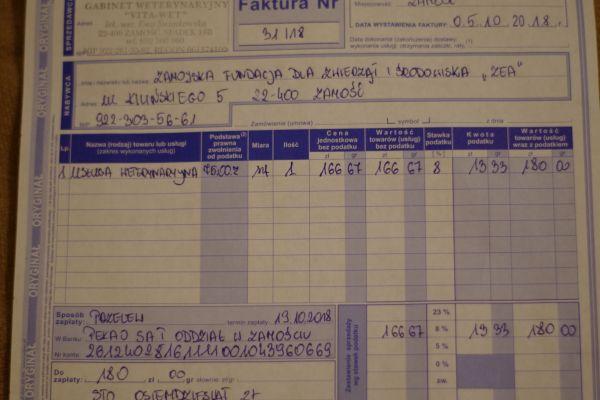 GABINET WETERYNARYJNY
"VITA-WET"
lek. wet. Ewa
22-400 ZAMOŚĆ, SADEK
Faktura Nr
31/18
Miejscowość:
DATA WYSTAWIENIA FAKTURY: 05.10.2018 r.
Data dokonania (zakończenia) dostawy;
wykonania usługi; otrzymania zaliczki, raty,
SPRZEDAWCA
Adres
ORYGINAŁ
NABYWCA
Imię i nazwisko lub nazwa: ZAMOJSKA FUNDACJA DLA ZWIERZĄT I ŚRODOWISKA „ZEA”
Adres UL. KILIŃSKIEGO 5 22-400 ZAMOŚĆ
NIP 922-303-56-61
Zamówienie (umowa) symbol z dnia
Lp. Nazwa (rodzaj) towaru lub usługi (zakres wykonanych usług) Podstawa prawna zwolnienia od podatku Miara Ilość Cena jednostkowa bez podatku Wartość towaru (usługi) bez podatku Stawka podatku Kwota podatku Wartość towaru (usługi) wraz z podatkiem
zł gr zł gr [%] zł gr zł gr
1 USŁUGA WETERYNARYJNA 1 166 67 166 67 8 13 33 180 00
Sposób zapłaty: PRZELEW termin zapłaty 19.10.2018
W Banku PEKAO SA I ODDZIAŁ W ZAMOŚCIU
Nr konta:
Zestawienie sprzedaży wg stawek podatku
23 %
166 67 8 % 13 33 180 00
5 %
0 %
zw.
Do zapłaty: 180 zł 00 gr słownie: zł/gr
STO OSIEMDZIESIĄT ZŁ